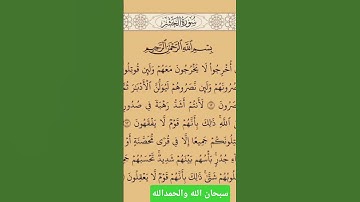 سُورَةُ الحَشْرِ
بِسْمِ اللَّهِ الرَّحْمَٰنِ الرَّحِيمِ
أُخْرِجُوا لَا يَخْرُجُونَ مَعَهُمْ وَلَئِن قُوتِلُوا
نَّصَرُوهُمْ لَيُوَلُّنَّ الْأَدْبَارَ
لَأَنتُمْ أَشَدُّ رَهْبَةً فِي صُدُورِ
اللَّهِ ذَٰلِكَ بِأَنَّهُمْ قَوْمٌ لَّا يَفْقَهُونَ
جَمِيعًا إِلَّا فِي قُرًى مُّحَصَّنَةٍ أَوْ
جُدُرٍ بَأْسُهُم بَيْنَهُمْ شَدِيدٌ تَحْسَبُهُمْ
شَتَّىٰ ذَٰلِكَ بِأَنَّهُمْ قَوْمٌ لَّا يَعْقِلُونَ
سبحان الله والحمدالله